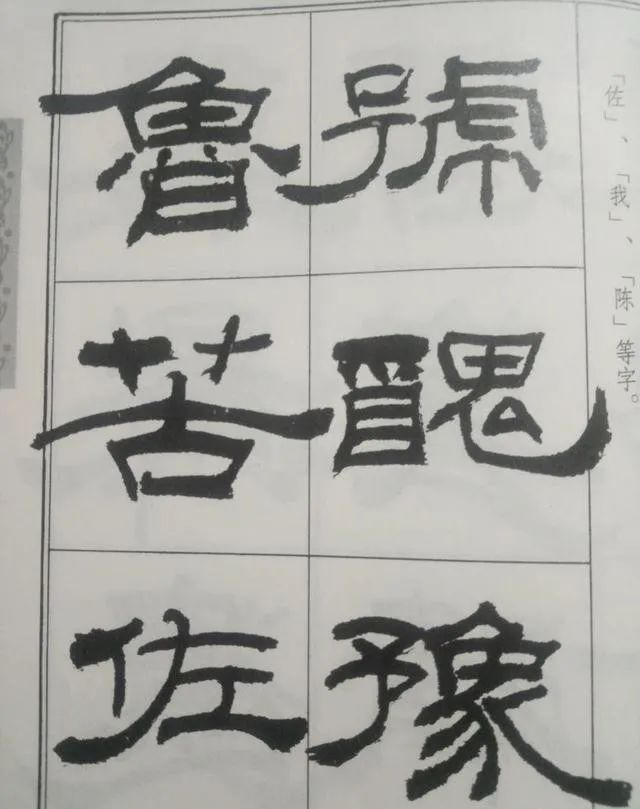 「佐」、「我」、「陈」等字。
號醜豫
魯苦佐